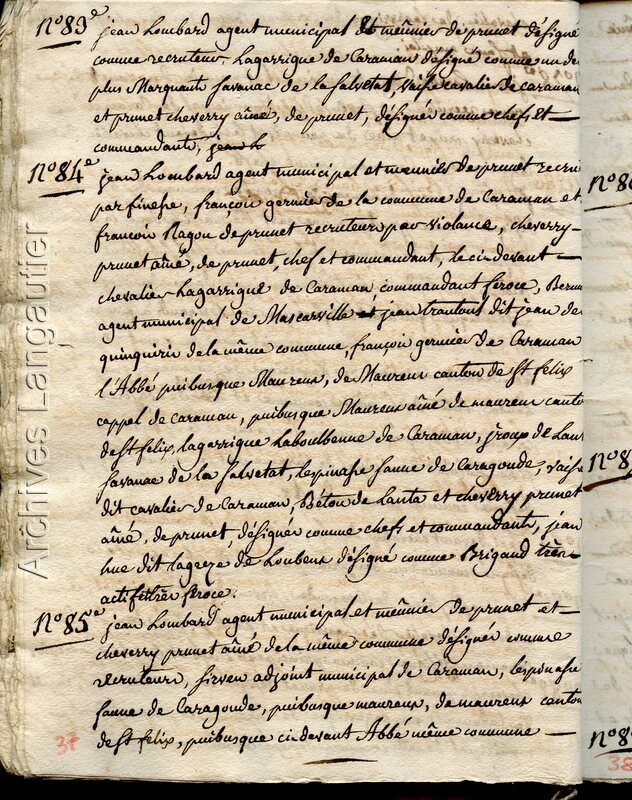 N.o 83.e jean Lombard agent municipal et meûnier de prunet désigné
comme recruteur. Lagarrigue de Caraman désigné comme un des
plus Marquants savanac de la salvetat, vaisse cavalier de caraman
et prunet cheverry aîné, de prunet, désignés comme chefs et
commandants, jean L
N.o 84.e jean Lombard agent municipal et meunier de prunet recru
par finesse, françois germier de la commune de Caraman et
françois Ragou de prunet recruteurs par violance, cheverry-
prunet aîné, de prunet, chef et commandant, le ci-devant
chevalier Lagarrigue de Caraman commandant féroce,
agent municipal de Mascarville et jean trantoul dit jean de
quinquiris de la même commune, françois germier de Caraman
l'Abbé puibusque Maurens, de Maurens canton de St felix
cappel de caraman, puibusque Maurens aîné de maurens canto
de St felix, lagarrigue Laboulbenne de Caraman, jroux de Lant
savanac de la salvetat, lespinasse fanne de Caragoude, vaisse
dit cavalier de Caraman, Béton de Lanta et cheverry prunet
aîné, de prunet, désignés comme chefs et commandants, jean
hue dit lagreze de Loubens désigné comme Brigand très
actif et très féroce.
N.o 85.e jean Lombard agent municipal et meûnier de prunet et
cheverry prunet aîné de la même commune désignés comme
recruteurs, sirven adjoint municipal de Caraman, lespinasse
fanne de Caragoude, puibusque maurens, de maurens canton
de St felix, puibusque ci-devant Abbé même commune
37
N.o 8
N.o 8
N.o 8
38
Archives Langautier